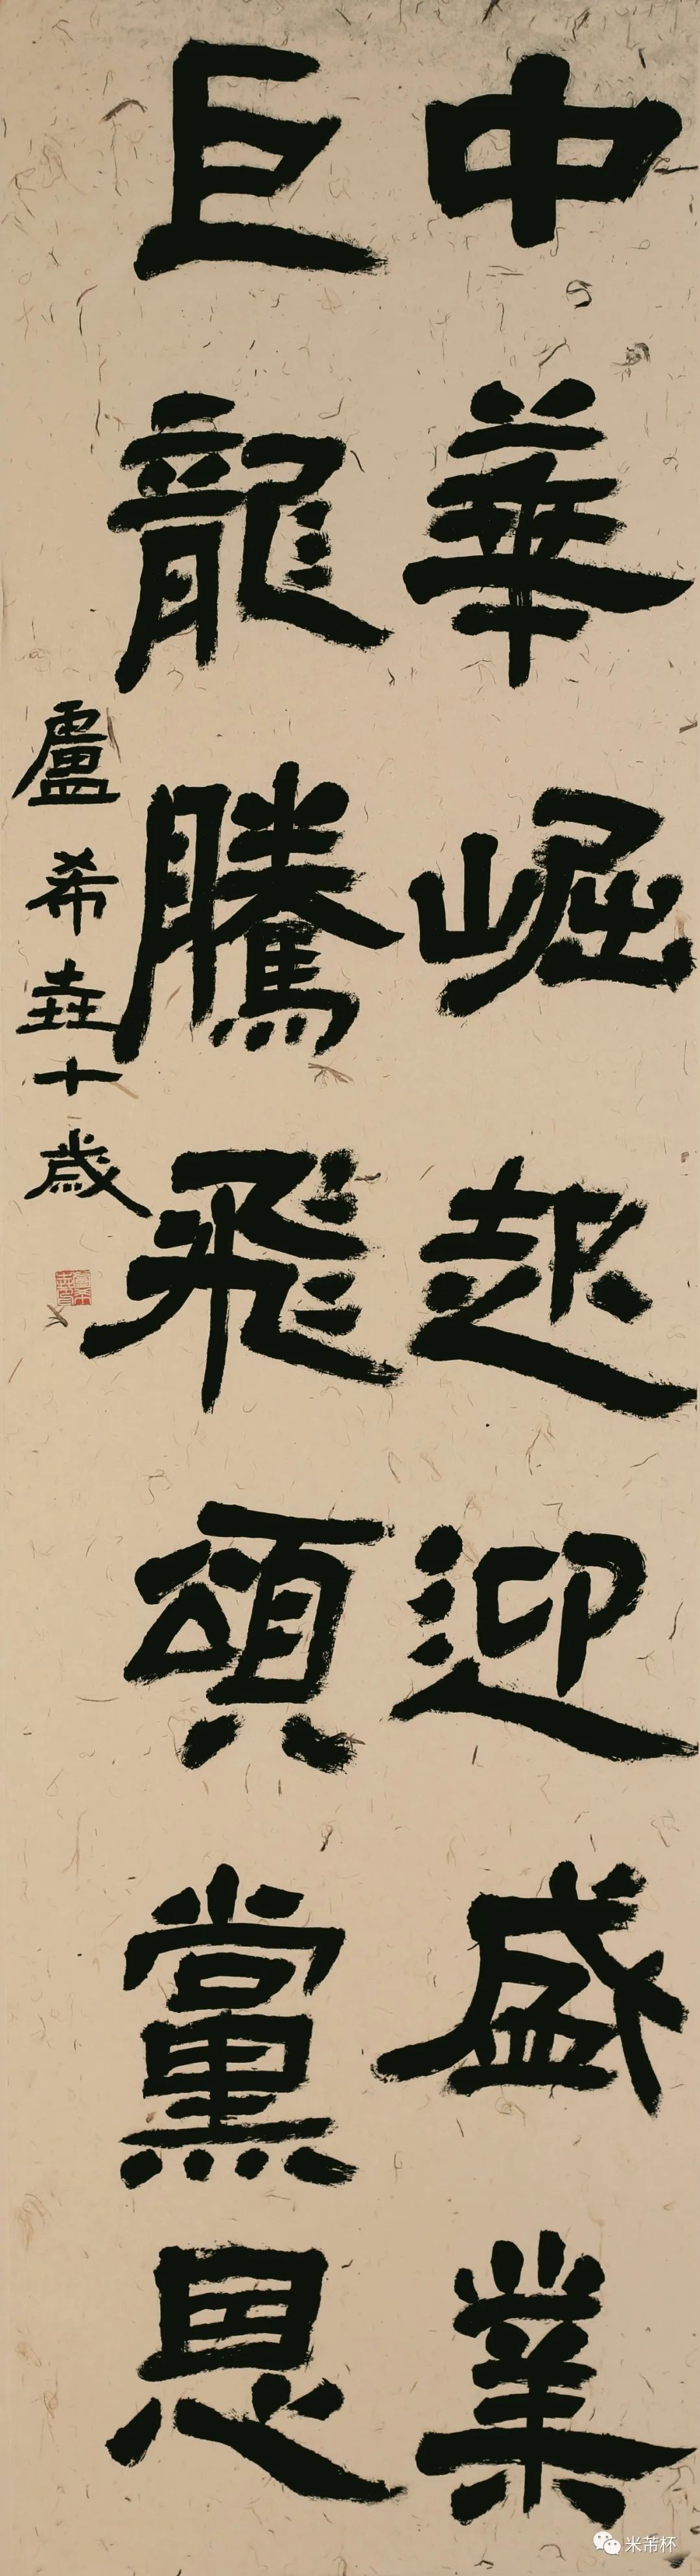 中華崛起迎盛業
巨龍騰飛頌黨恩
盧希垚十歲
米芾杯